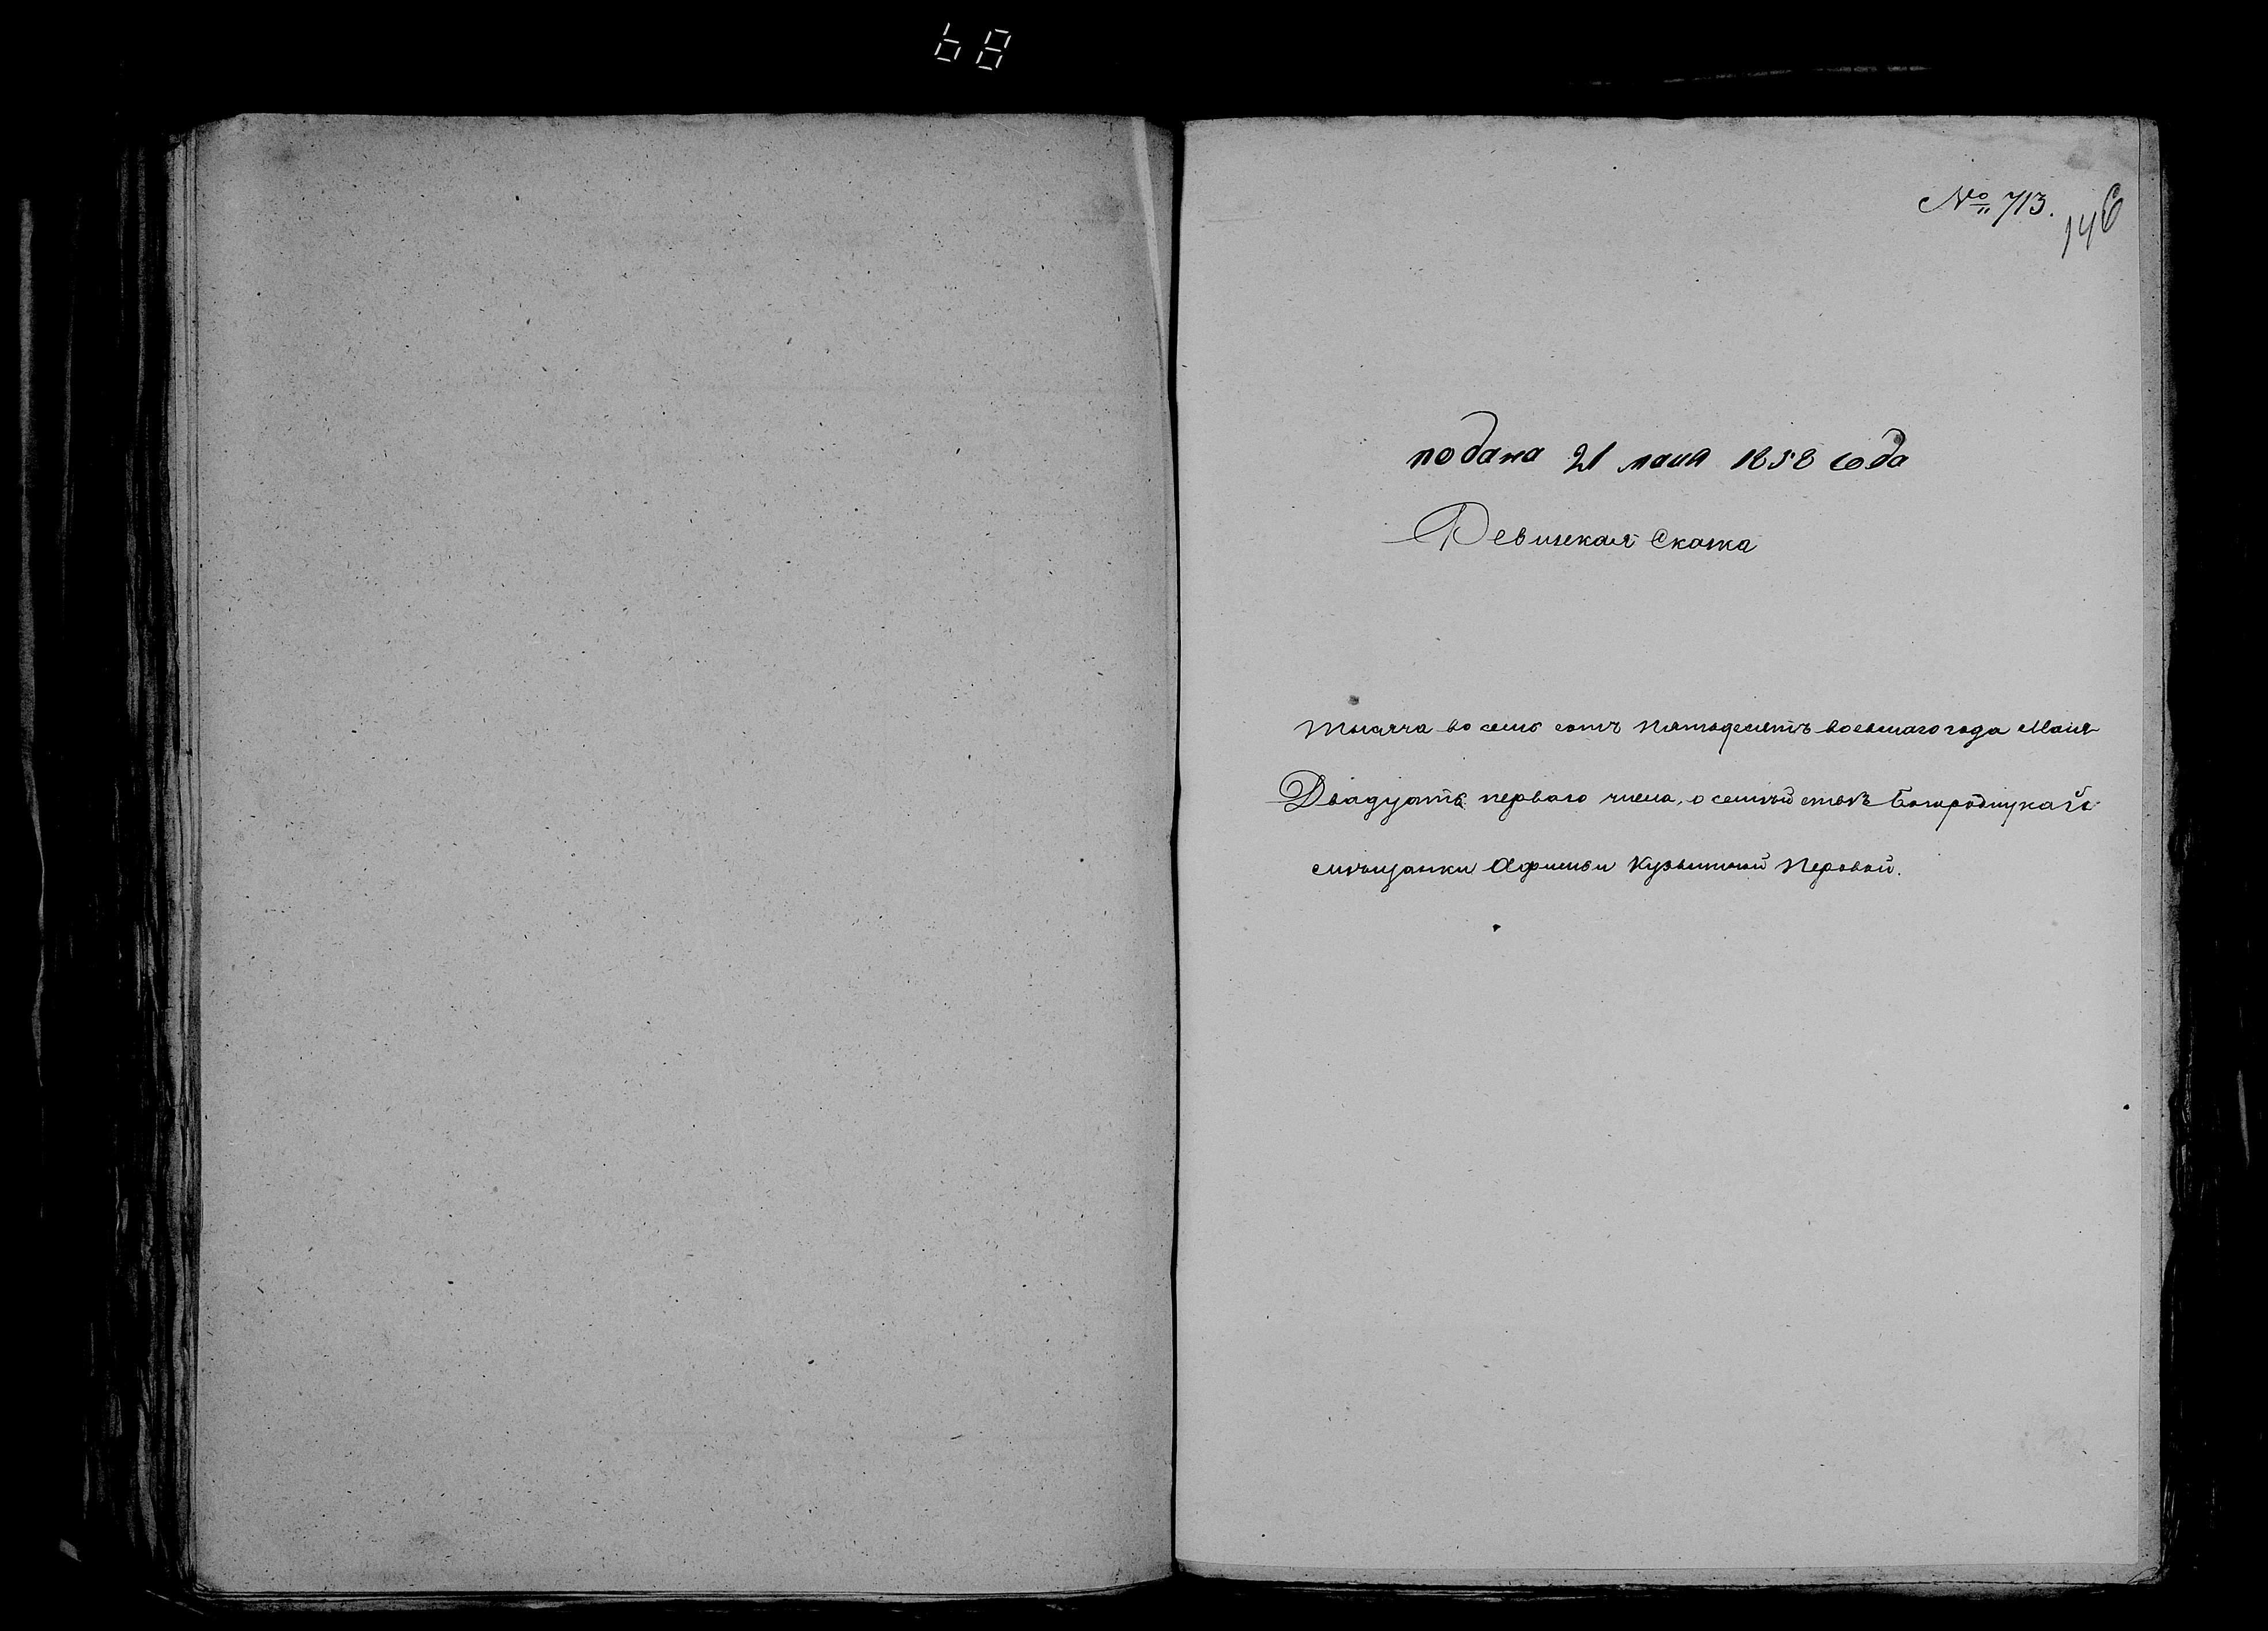 68
№ 713.
146
подана 21 мая 1858 года
Ревизская Скаска
Тысяча восемь сотъ пятьдесятъ восьмаго года Маия
Двадцать перваго числа, о семѣйствѣ Богородицкой
мѣщанки Афимьи Кузьминой Перовой.